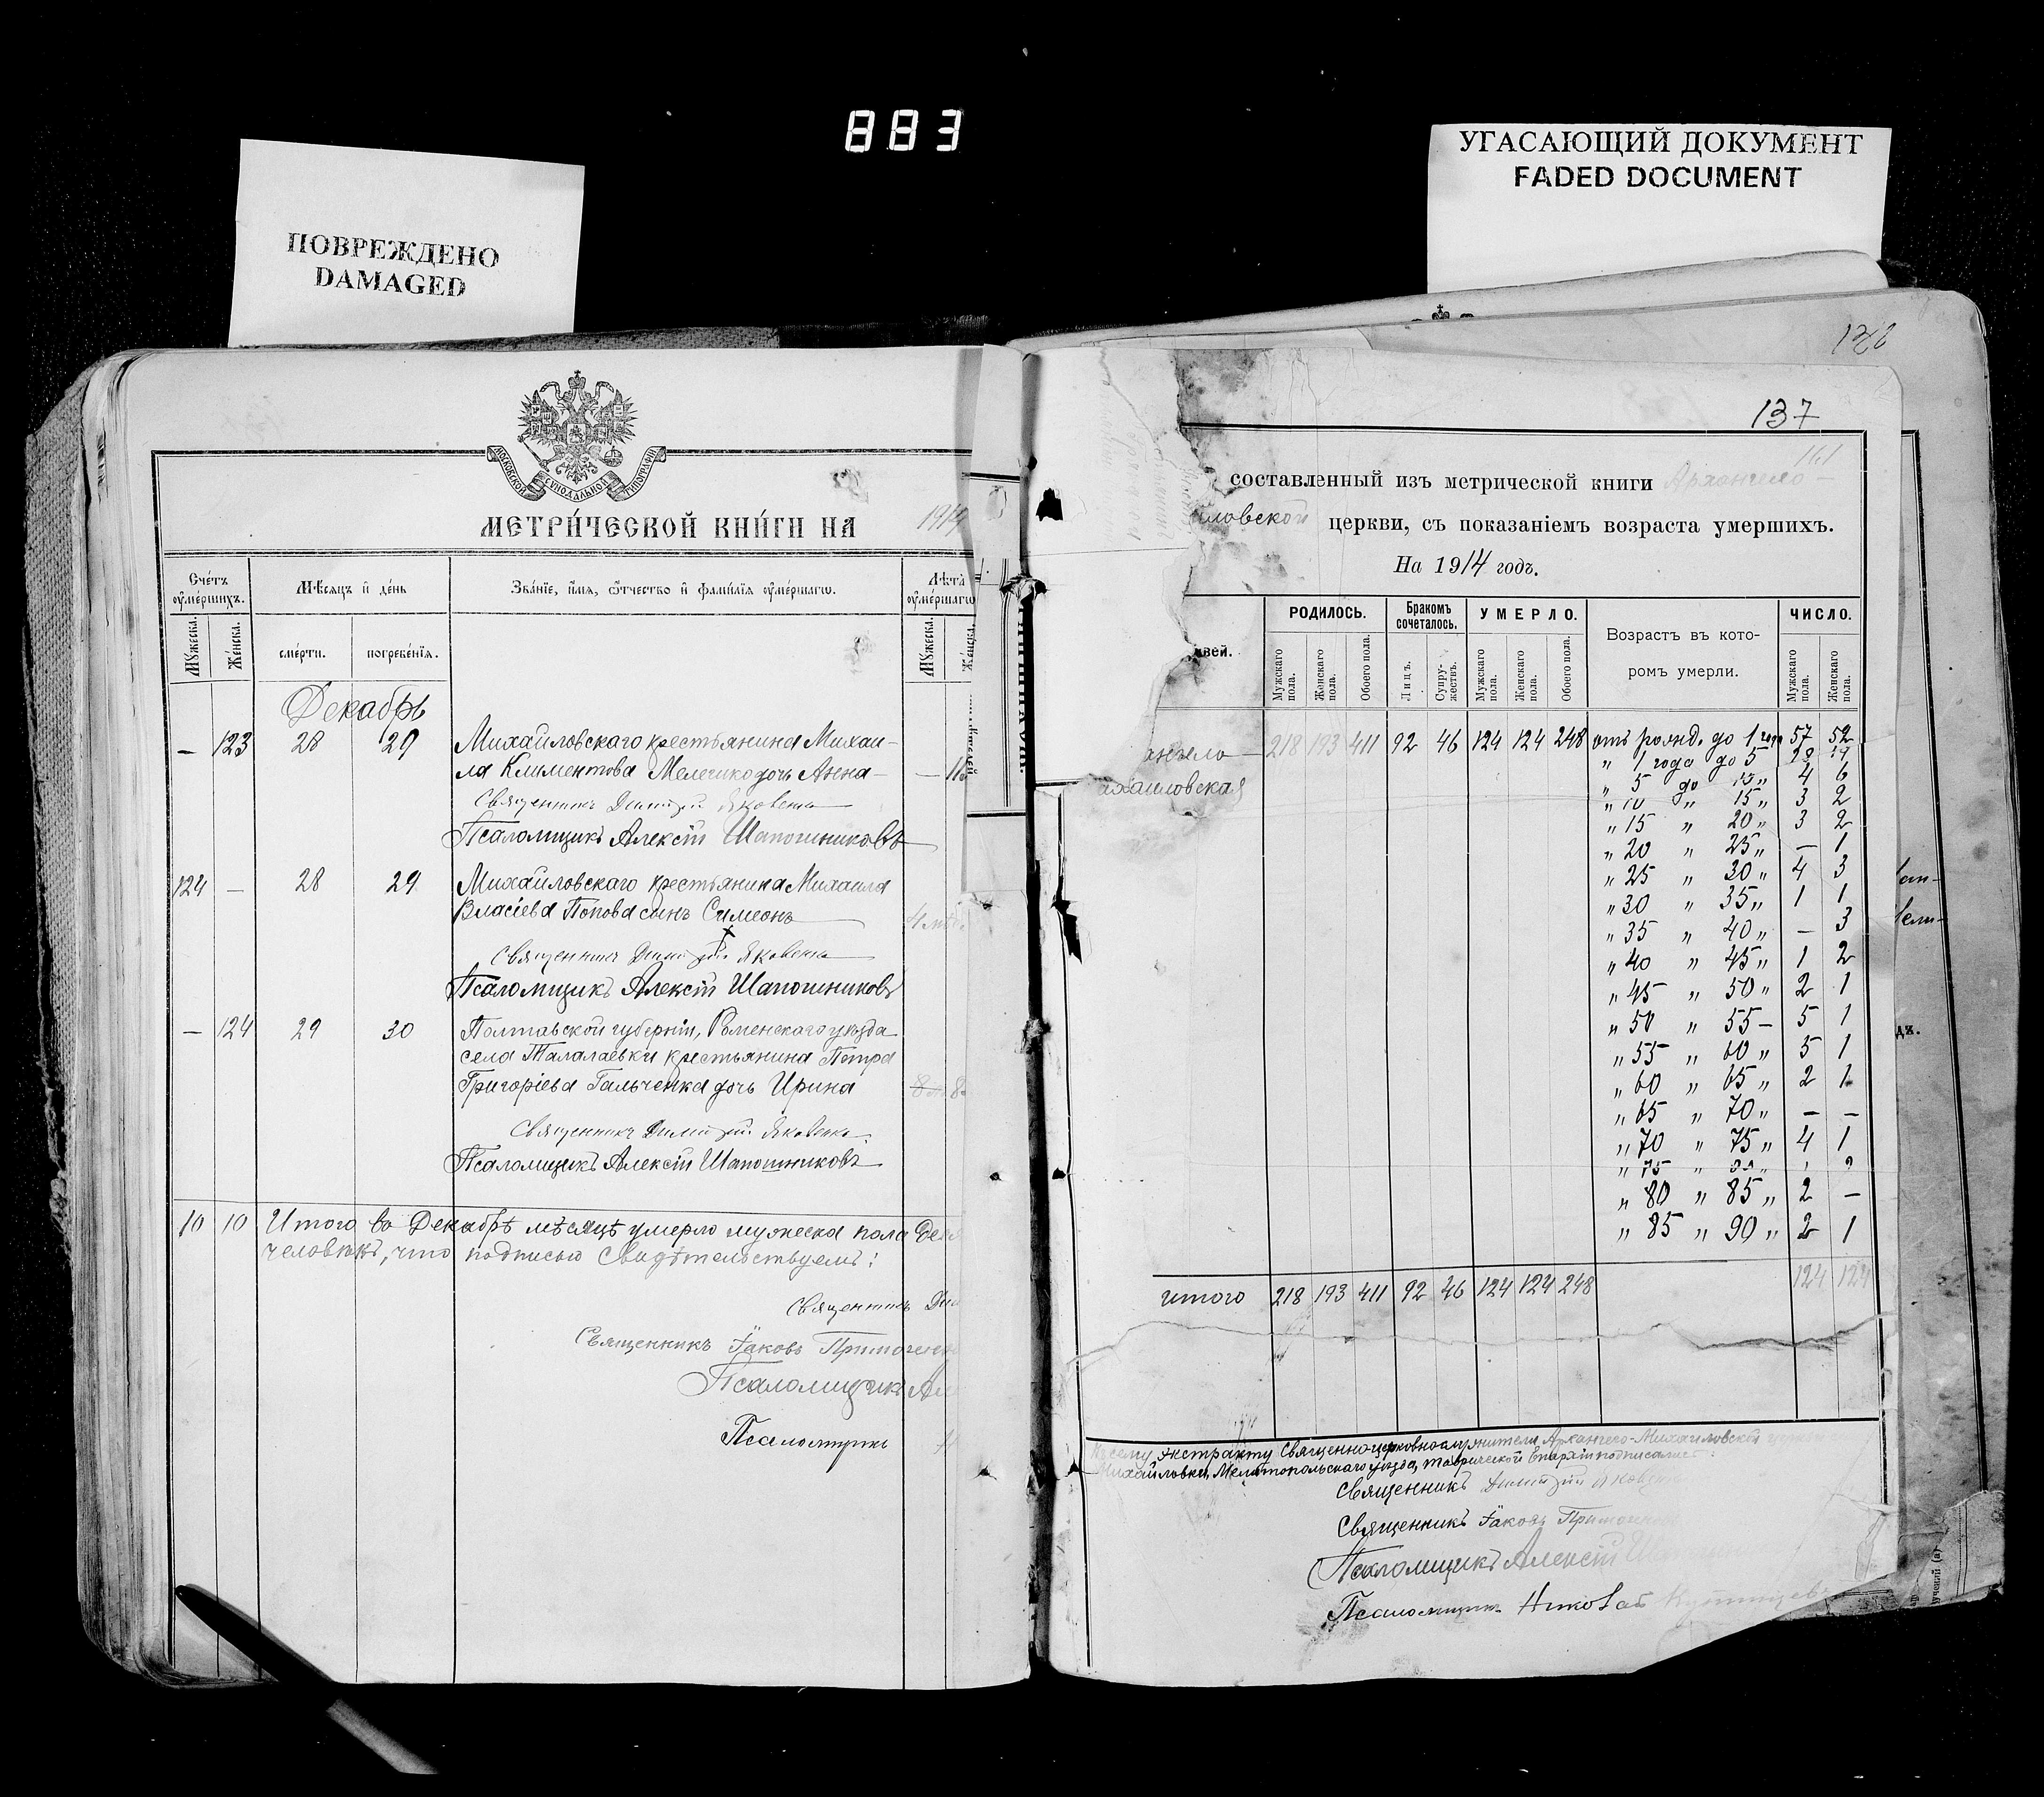 883
ПОВРЕЖДЕНО
DAMAGED
УГАСАЮЩИЙ ДОКУМЕНТ
FADED DOCUMENT
МОСКОВСКОЙ СУНОДАЛЬНОЙ ТИПОГРАФІИ
МЕТРИ́ЧЕСКОЙ КНИ́ГИ НА 1914
Сче́тъ ᲂу҆ме́ршихъ.
Мѣ́сяцъ и҆ де́нь
Зва́нїе, и҆́мѧ, ѻ҆́тчество и҆ фами́лїѧ ᲂу҆ме́ршагѡ.
Лѣ́та ᲂу҆ме́ршагѡ
Мꙋ́жеска.
Же́нска.
сме́рти.
погребе́нїѧ.
Мꙋ́жеска.
Же́нска.
Декабрь
— 123 28 29 Михайловскаго крестьянина Михаи-
ла Климентова Мелешко дочь Анна —
Священникъ Димитрій Яковенко
Псаломщикъ Алексій Шапошниковъ
124 — 28 29 Михайловскаго крестьянина Михаила
Власіева Попова сынъ Симеонъ
Священникъ Димитрій Яковенко
Псаломщикъ Алексій Шапошниковъ
— 124 29 30 Полтавской губерніи, Роменскаго уѣзда
села Талалаевки крестьянина Петра
Григоріева Гальченка дочь Ирина
Священникъ Димитрій Яковенко
Псаломщикъ Алексій Шапошниковъ
10 10 Итого въ Декабрѣ мѣсяцѣ умерло мужеска пола
человѣкъ, что подписью свидѣтельствуемъ:
Священникъ
Священникъ Іаковъ
Псаломщикъ
Псаломщикъ
137
161
составленный изъ метрической книги Архангело-
иловской церкви, съ показаніемъ возраста умершихъ.
На 1914 годъ.
вей.
РОДИЛОСЬ.
Бракомъ сочеталось.
УМЕРЛО.
Возрастъ въ кото-
ромъ умерли.
ЧИСЛО.
Мужскаго пола.
Женскаго пола.
Обоего пола.
Лицъ.
Супружествъ.
Мужскаго пола.
Женскаго пола.
Обоего пола.
Мужскаго пола.
Женскаго пола.
ангело— 218 193 411 92 46 124 124 248 отъ рожд. до 1 года 57 52
„ 1 года до 5
ихаиловская „ 5 до 4 6
„ 10 „ 15 „ 3 2
„ 15 „ 20 „ 3 2
„ 20 „ 25 „ — 1
„ 25 „ 30 „ 4 3
„ 30 „ 35 „ 1 1
„ 35 „ 40 „ — 3
„ 40 „ 45 „ 1 2
„ 45 „ 50 „ 2 1
„ 50 „ 55 — 5 1
„ 55 „ 60 „ 5 1
„ 60 „ 65 „ 2 1
„ 65 „ 70 „ — —
„ 70 „ 75 „ 4 1
„ 75 „
„ 80 „ 85 „ 2 —
„ 85 „ 90 „ 2 1
итого 218 193 411 92 46 124 124 248 124 124
сему экстракту Священно-церковнослужители Архангело-Михайловской церкви
Михайловки, Мелитопольскаго уѣзда, Таврической Епархіи подписались:
Священникъ Димитрій Яковен
Священникъ Іаковъ
Псаломщикъ Алексій
Псаломщикъ Николай